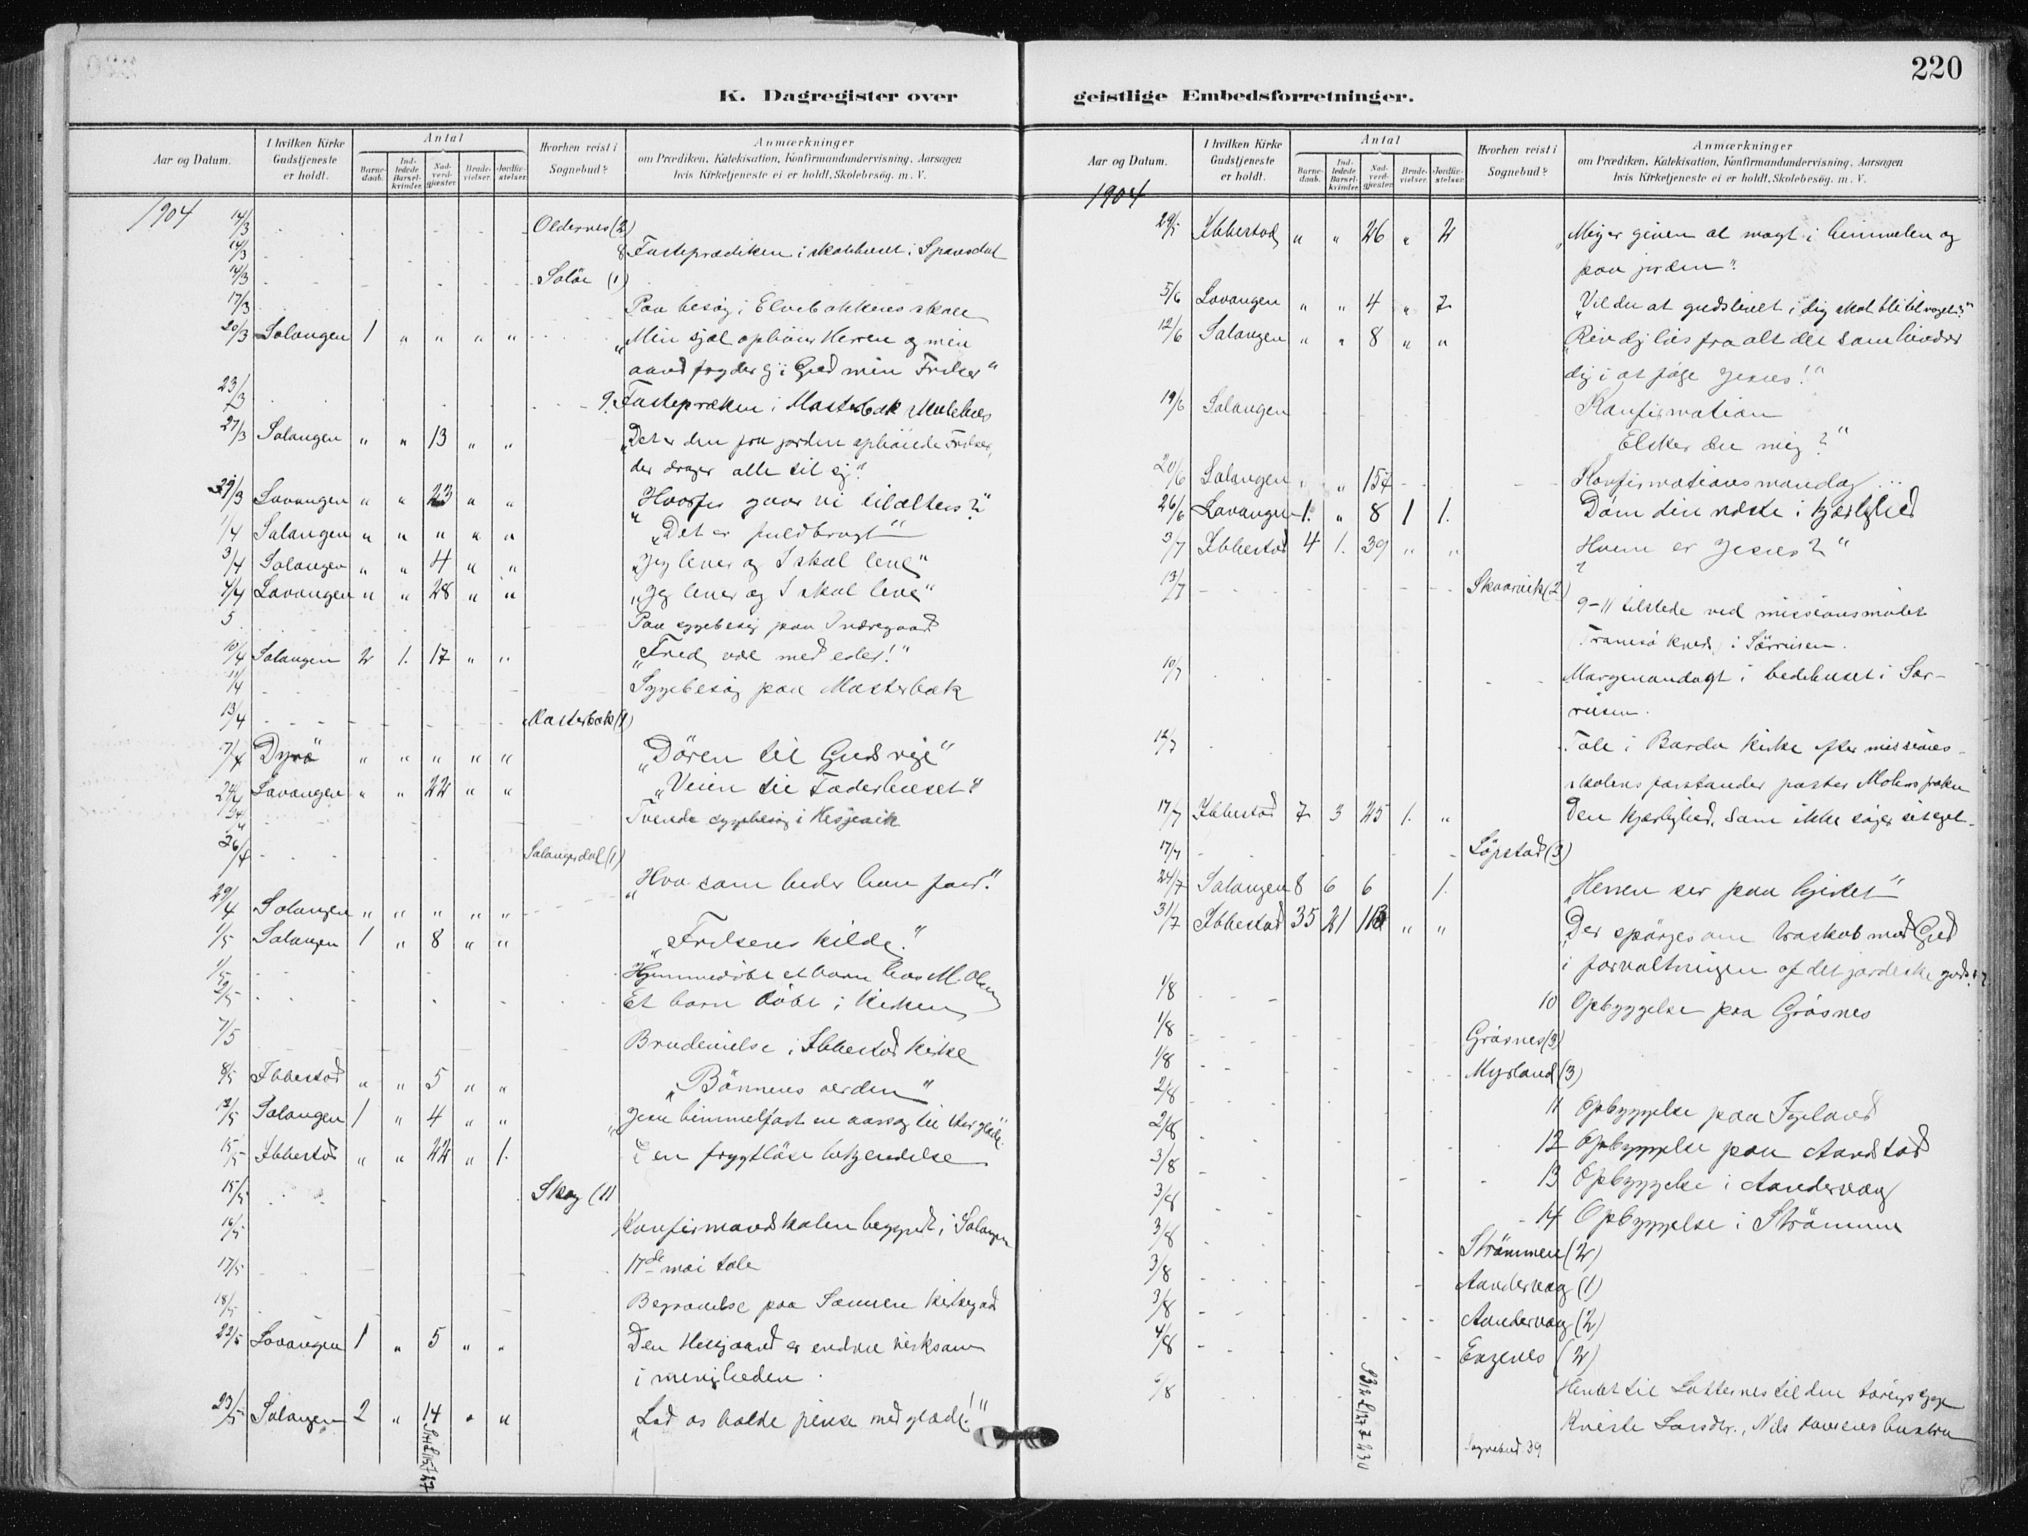 220
K. Dagregister over
Aar og Datum.
I hvilken Kirke Gudstjeneste er holdt.
Antal
Barnedaab.
Indledede Barselkvinder.
Nadverdgjester.
Brudevielser.
Jordfæstelser.
Hvorhen reist i Sognebud?
Anmærkninger
om Prædiken, Katekisation, Konfirmandundervisning, Aarsagen
hvis Kirketjeneste ei er holdt, Skolebesøg. m. V.
1904
14/3 Oldernes (2)
14/3 8 Fasteprædiken i skolehuset i Spansdal
14/3 Soløi (1)
17/3 Paa besøg i Elvebakkens skole
20/3 Salangen 1 " " " " "Min sjæl ophøier Herren og min
aand fryder sig i Gud min Frelser"
23/3 9. Fastepræken i Masterbak skolehus
27/3 Salangen " " 13 " " "Det er den fra jorden ophøiede Frelser,
der drager alle til sig."
29/3 Lavangen " " 23 " " "Hvorfor gaar vi tilalters?"
1/4 Salangen " " " " " "Det er fuldbragt"
3/4 Salangen " " 4 " " "Jeg lever og I skal leve"
4/4 Lavangen " " 28 " " "Jeg lever og I skal leve"
5 Paa sygebesøg paa Indregaard
10/4 Salangen 2 1. 17 " " "Fred være med eder!"
11/4 Sygebesøg paa Masterbak
13/4 Masterbak (1)
17/4 Dyrø " " " " " "Døren til Guds rige"
24/4 Lavangen " " 22 " " "Veien til Faderhuset"
Tvende sygebesøg i Hesjevik
26/4 Salangsdal (1)
"Hva som beder han faar."
29/4 Salangen " " " " "
1/5 Salangen 1 " 8 " " "Frelsens kilde."
1/5 Hjemmedøbt et barn hos M. Olsen
2/5 Et barn døbt i kirken
7/5 Brudevielse i Ibbestad kirke
8/5 Ibbestad " " 5 " " "Bønnens verden"
12/5 Salangen 1 " 4 " " "Jesu himmelfart en aarsag til stor glæde.
15/5 Ibbestad " " 22 " 1. Den frygtløse bekjendelse
15/5 Skog (1)
16/5 Konfirmandskolen begyndt i Salangen
17/5 17de mai tale
18/5 Begravelse paa Sannen kirkegaard
22/5 Lavangen 1 " 5 " " Den Helligaand er endnu virksom
i menigheden.
23/5 Salangen 2 " 14 " " "Lad os holde pinse med glæde!"
geistlige Embedsforretninger.
Aar og Datum.
I hvilken Kirke Gudstjeneste er holdt.
Antal
Barnedaab.
Indledede Barselkvinder.
Nadverdgjester.
Brudevielser.
Jordfæstelser.
Hvorhen reist i Sognebud?
Anmærkninger
om Prædiken, Katekisation, Konfirmandundervisning, Aarsagen
hvis Kirketjeneste ei er holdt, Skolebesøg. m. V.
1904
29/5 Ibbestad " " 26 " 2 "Mig er given al magt i himmelen og
paa jorden".
5/6 Lavangen " " 4 " 7 "Vil du at gudslivet i dig skal bli bevaget?"
12/6 Salangen " " 8 " " "Riv dig løs fra alt det som hindrer
dig i at følge Jesus!"
19/6 Salangen Konfirmation
"Elsker du mig?"
20/6 Salangen " " 157 Konfirmationsmandag
26/6 Lavangen 1. " 8 1 1. Døm din næste i kjærlighed
3/7 Ibbestad 4 1. 39 " " Hvem er Jesus?"
13/7 Skaarvik (2)
9-11 tilstede ved missionsmødet
Tromsø kreds i Sørreisen.
10/7 Morgenandagt i bedehuset i Sør-
reisen.
12/7 Tale i Bardu kirke efter missions-
skolens forstander pastor Molus præken
17/7 Ibbestad 7 3 25 1. " Den kjærlighed, som ikke søger sit eget.
17/7 Løpstad (3)
24/7 Salangen 8 6 6 1. "Herren ser paa hjertet"
31/7 Ibbestad 35 21 " " "Der spørges om troskab mod Gud
i forvaltningen af det jordiske gods."
1/8 10 Opbyggelse paa Grøsnes
1/8 Grøsnes (3)
1/8 Myrland (3)
2/8 11 Opbyggelse paa Foreland
2/8 12 Opbyggelse paa Aandstad
3/8 13 Opbyggelse i Aandervaag
3/8 14 Opbyggelse i Strømmen
3/8 Strømmen (2)
3/8 Aandervaag (1)
3/8 Aandervaag (2)
4/8 Engenes (2)
/8 Hentet til Lotternes til den
Larsdtr., Nils hustru
Sognebud 39